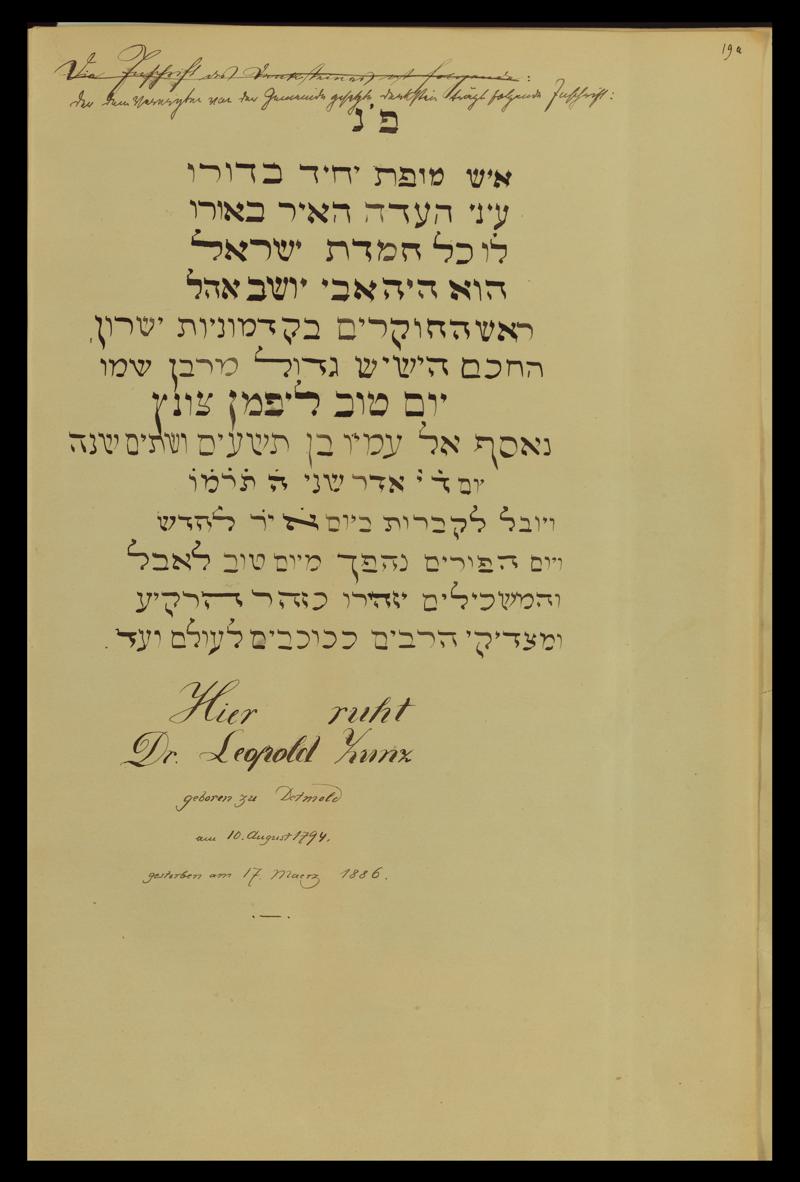 19a
Die Inschrift des Denksteines ist folgende:
Der dem Verewigten von der Gemeinde gesetzte Denkstein trägt folgende Inschrift:
פ'נ
איש מופת יחיד בדורו
עיני העדה האיר באורו
לו כל חמדת ישראל
הוא היה אבי יושב אהל
ראש החוקרים בקדמוניות ישרון,
החכם הישיש גדול מרבן שמו
יום טוב ליפמן צונץ
נאסף אל עמיו בן תשעים ושתים שנה
יום ד' י' אדר שני ה' תרמו
ויובל לקברות ביום א' י"ד לחדש
ויום הפורים נהפך מיום טוב לאבל
והמשכילים יזהירו כזהר הרקיע
ומצדיקי הרבים ככוכבים לעולם ועד.
Hier ruht
Dr. Leopold Zunz
geboren zu Detmold
am 10. August 1794.
gestorben am 17. Maerz 1886.